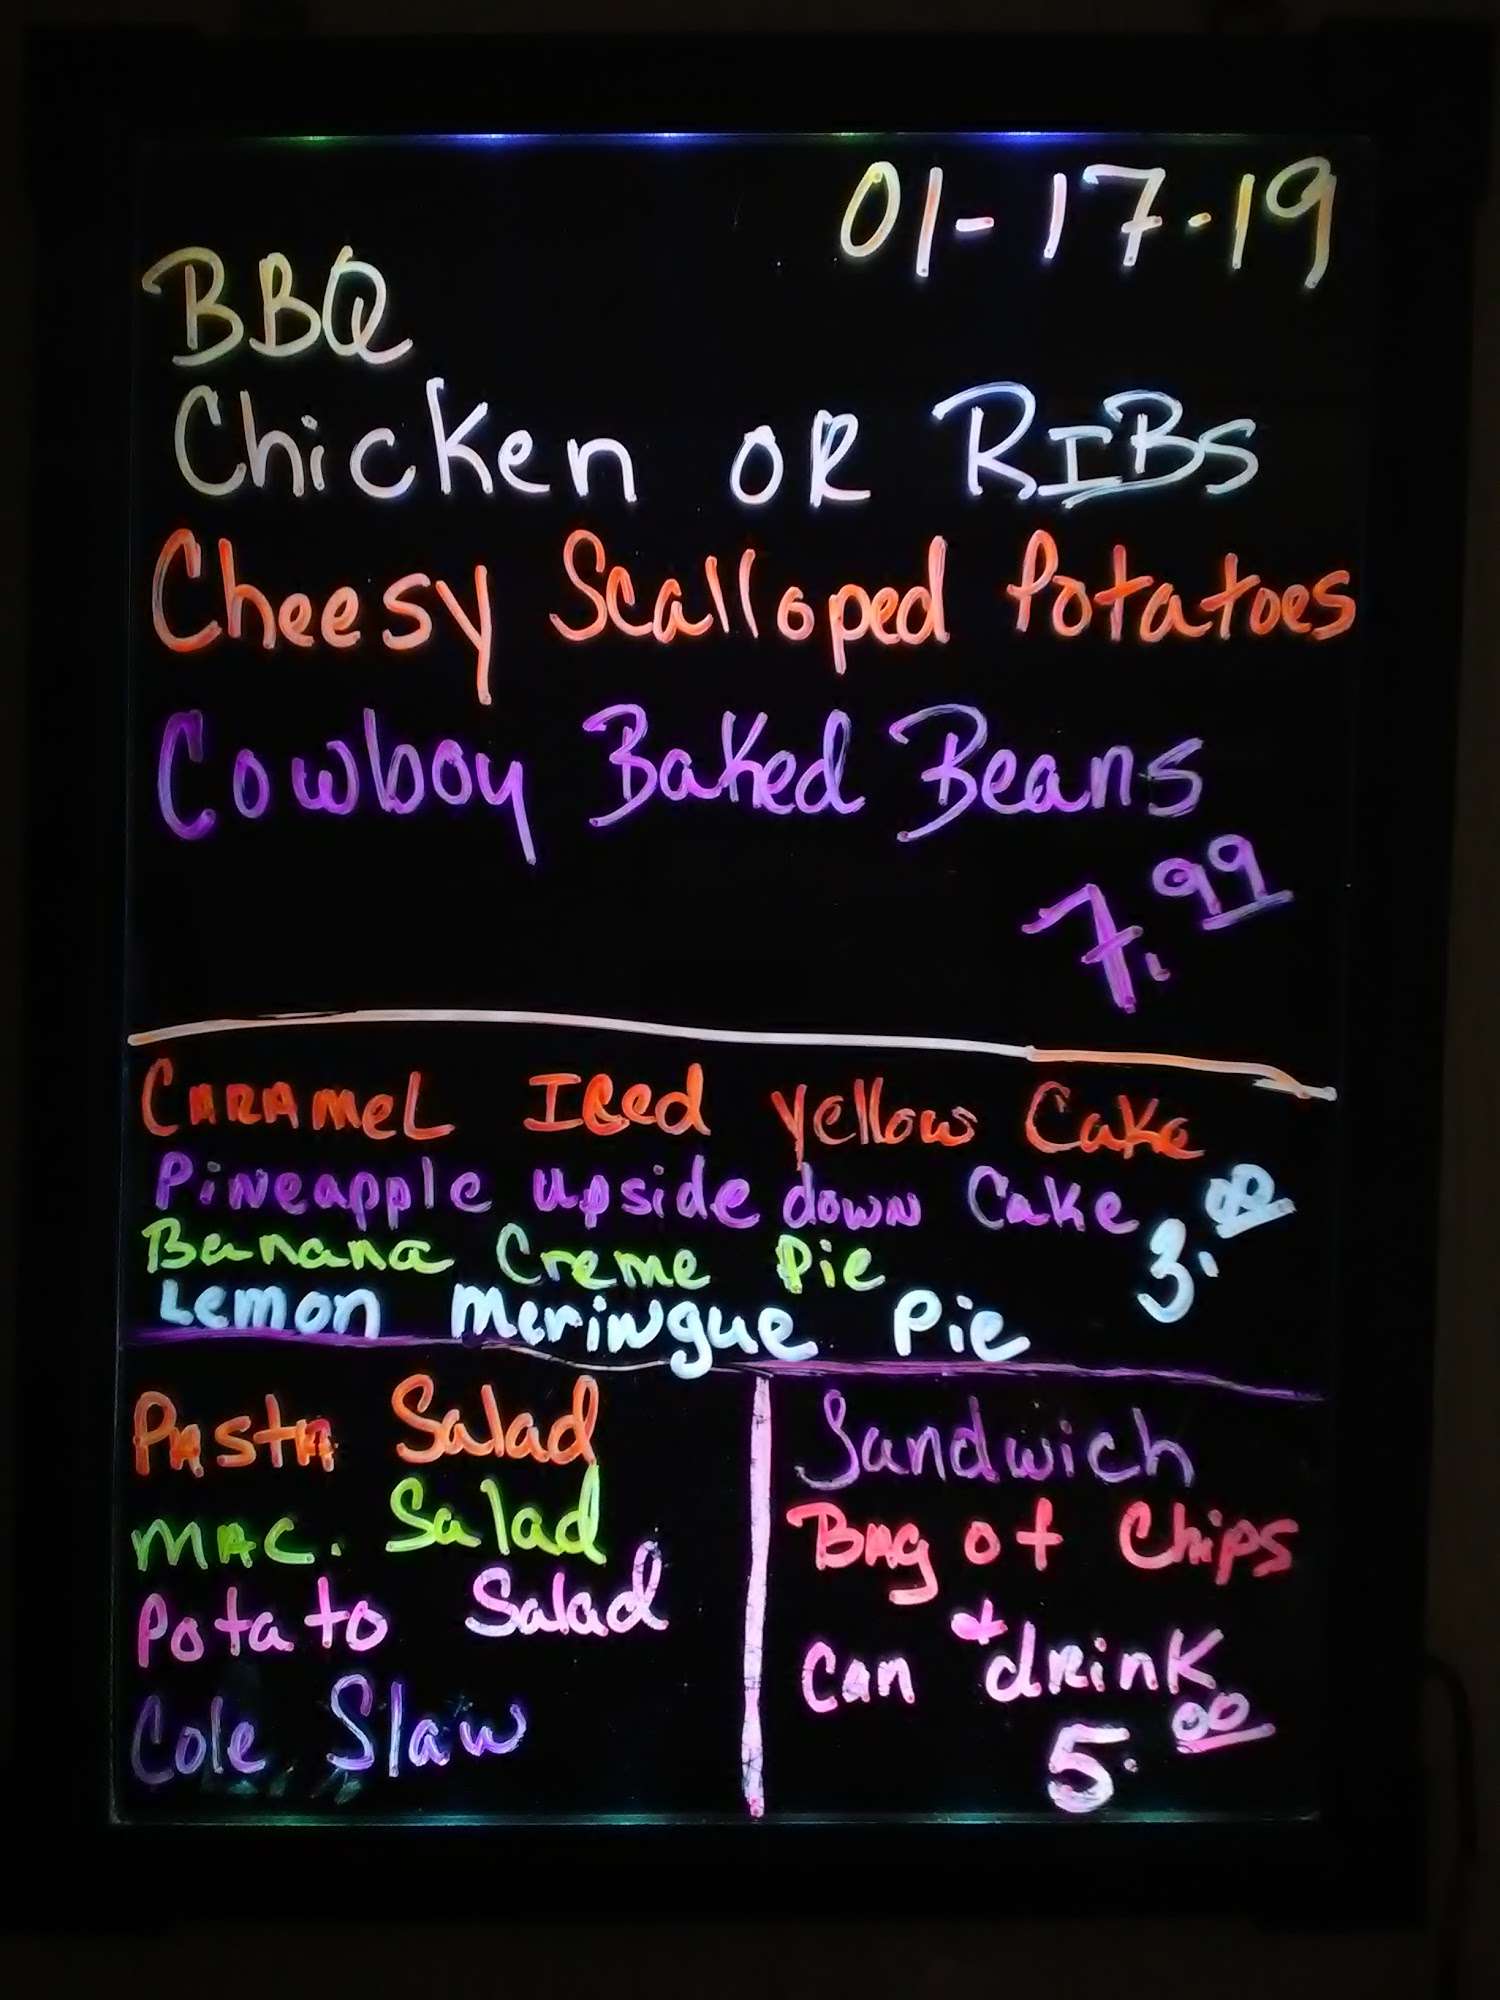 01-17-19
BBQ
Chicken OR RIBS
Cheesy Scalloped Potatoes
Cowboy Baked Beans
7.99
CARAMEL Iced Yellow Cake
Pineapple upside down Cake
Banana Creme Pie
3.00
Lemon Meringue Pie
Pasta Salad
MAC. Salad
Potato Salad
Cole Slaw
Sandwich
Bag of Chips
+
Can drink
5.00